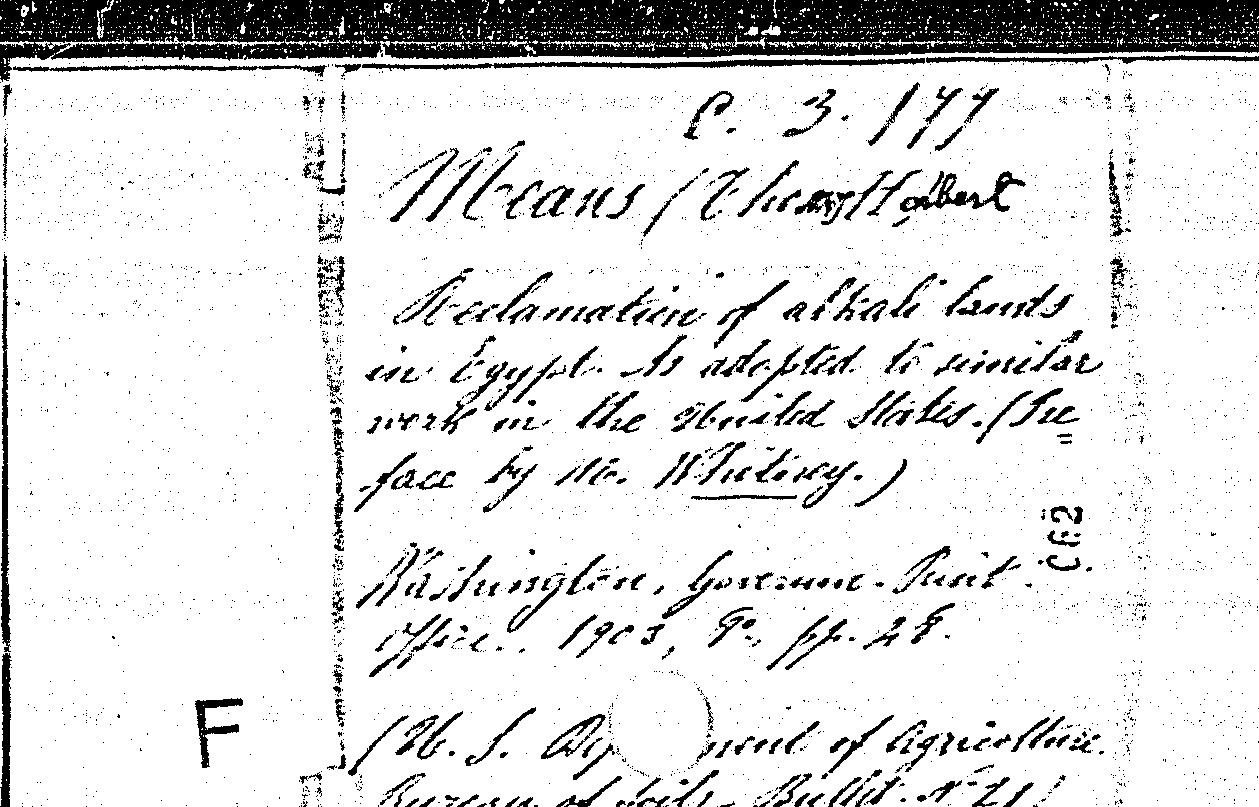 C. 3. 177
Means (Thomas Herbert
Reclamation of alkali lands
in Egypt. As adopted to similar
work in the United States. (Pre
face by M. Whitney.)
C62
Washington, Governm. Print.
Office. 1903, 8°, pp. 48.
F
(U. S. Dep nent of Agriculture.
Bureau of Soils - Bullet. N° 21)